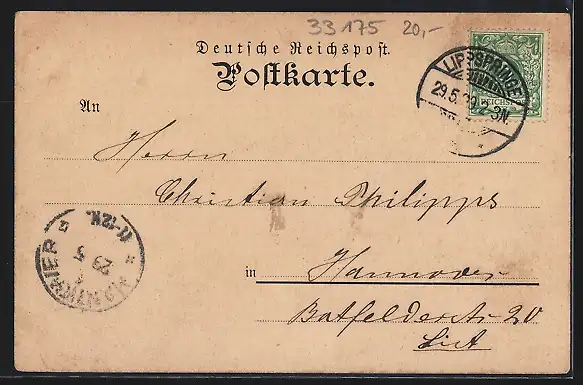 33175 20,-
Deutsche Reichspost.
Postkarte.
LIPPSPRINGE
29.5.99. 2-3N.
REICHSPOST
An
Herrn
Christian Philipps
11-12N.
29 5
in Hannover
20
List